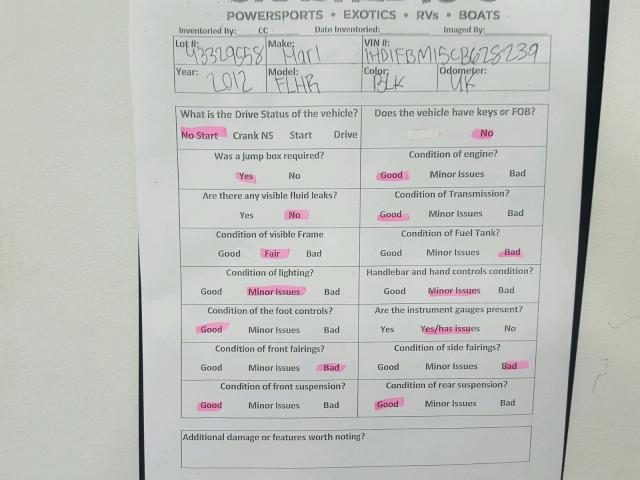 POWERSPORTS • EXOTICS • RVs • BOATS
Inventoried By: CC Date Inventoried: Imaged By:
Lot #: 43329558 Make: Harl VIN #: 1HD1FBM15CB628239
Year: 2012 Model: FLHR Color: BLK Odometer: UK
What is the Drive Status of the vehicle? Does the vehicle have keys or FOB?
No Start Crank NS Start Drive No
Was a jump box required? Condition of engine?
Yes No Good Minor Issues Bad
Are there any visible fluid leaks? Condition of Transmission?
Yes No Good Minor Issues Bad
Condition of visible Frame Condition of Fuel Tank?
Good Fair Bad Good Minor Issues Bad
Condition of lighting? Handlebar and hand controls condition?
Good Minor Issues Bad Good Minor Issues Bad
Condition of the foot controls? Are the instrument gauges present?
Good Minor Issues Bad Yes Yes/has issues No
Condition of front fairings? Condition of side fairings?
Good Minor Issues Bad Good Minor Issues Bad
Condition of front suspension? Condition of rear suspension?
Good Minor Issues Bad Good Minor Issues Bad
Additional damage or features worth noting?